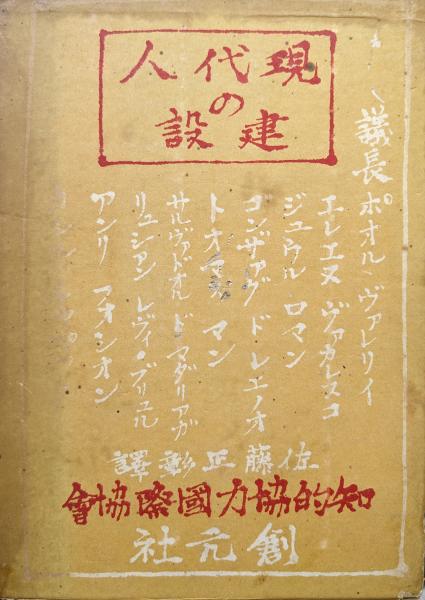 現代人
の
建設
議長 ポオル・ヴァレリイ
エレエヌ ヴァカレスコ
ジュウル ロマン
ゴンザアグ ド レエノオ
トオマス マン
サルヴァドオル ド マダリアガ
リュシアン レヴィ・ブリュル
アンリ フオシオン
佐藤正彰譯
知的協力國際協會
創元社